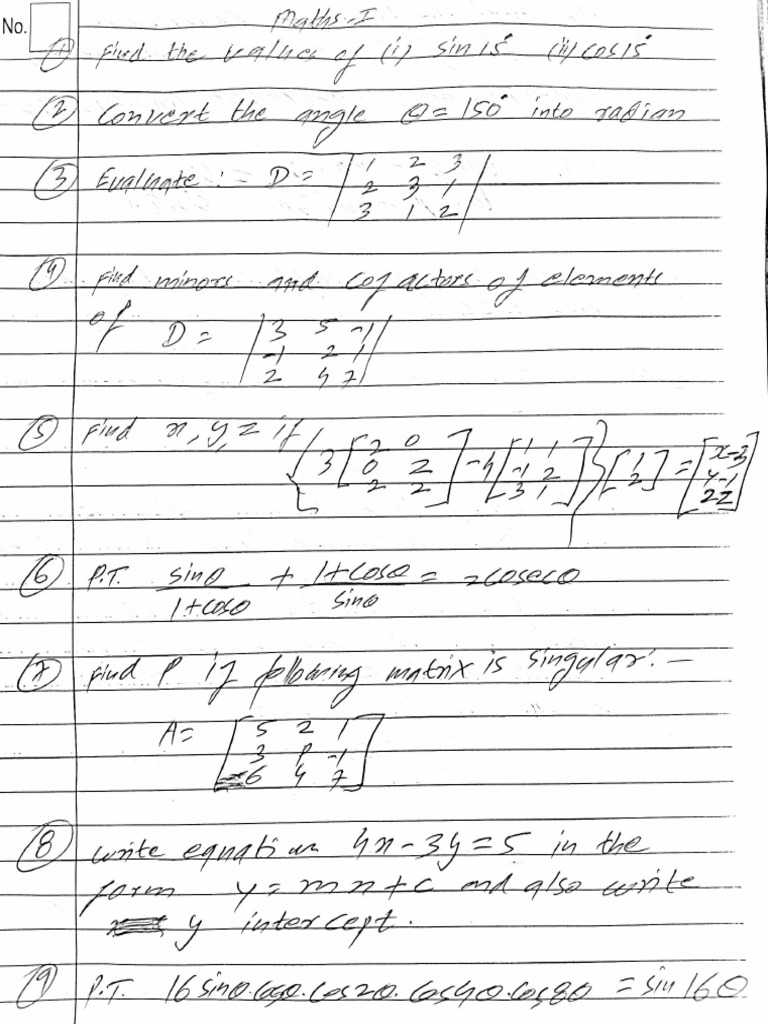 Maths-I
No.
① Find the values of (i) sin15° (ii) cos15°
② Convert the angle θ = 150° into radian
③ Evaluate :- D = | 1 2 3 |
| 2 3 1 |
| 3 1 2 |
④ Find minors and cofactors of elements
of D = | 3 5 -1 |
| -1 2 1 |
| 2 4 7 |
⑤ Find x, y, z if
{ 3 [ 2 0 ] -4 [ 1 1 ] } [ 1 ] = [ x-3 ]
[ 0 2 ] [ -1 2 ] [ 2 ] [ y-1 ]
[ 2 2 ] [ 3 1 ] [ 2z ]
⑥ P.T. sinθ/1+cosθ + 1+cosθ/sinθ = 2cosecθ
⑦ Find P if following matrix is singular. -
A = [ 5 2 1 ]
[ 3 P -1 ]
[ 6 4 7 ]
⑧ write equation 4x - 3y = 5 in the
form y = mx + c and also write
y intercept.
⑨ P.T. 16 sinθ.cosθ.cos2θ.cos4θ.cos8θ = sin16θ